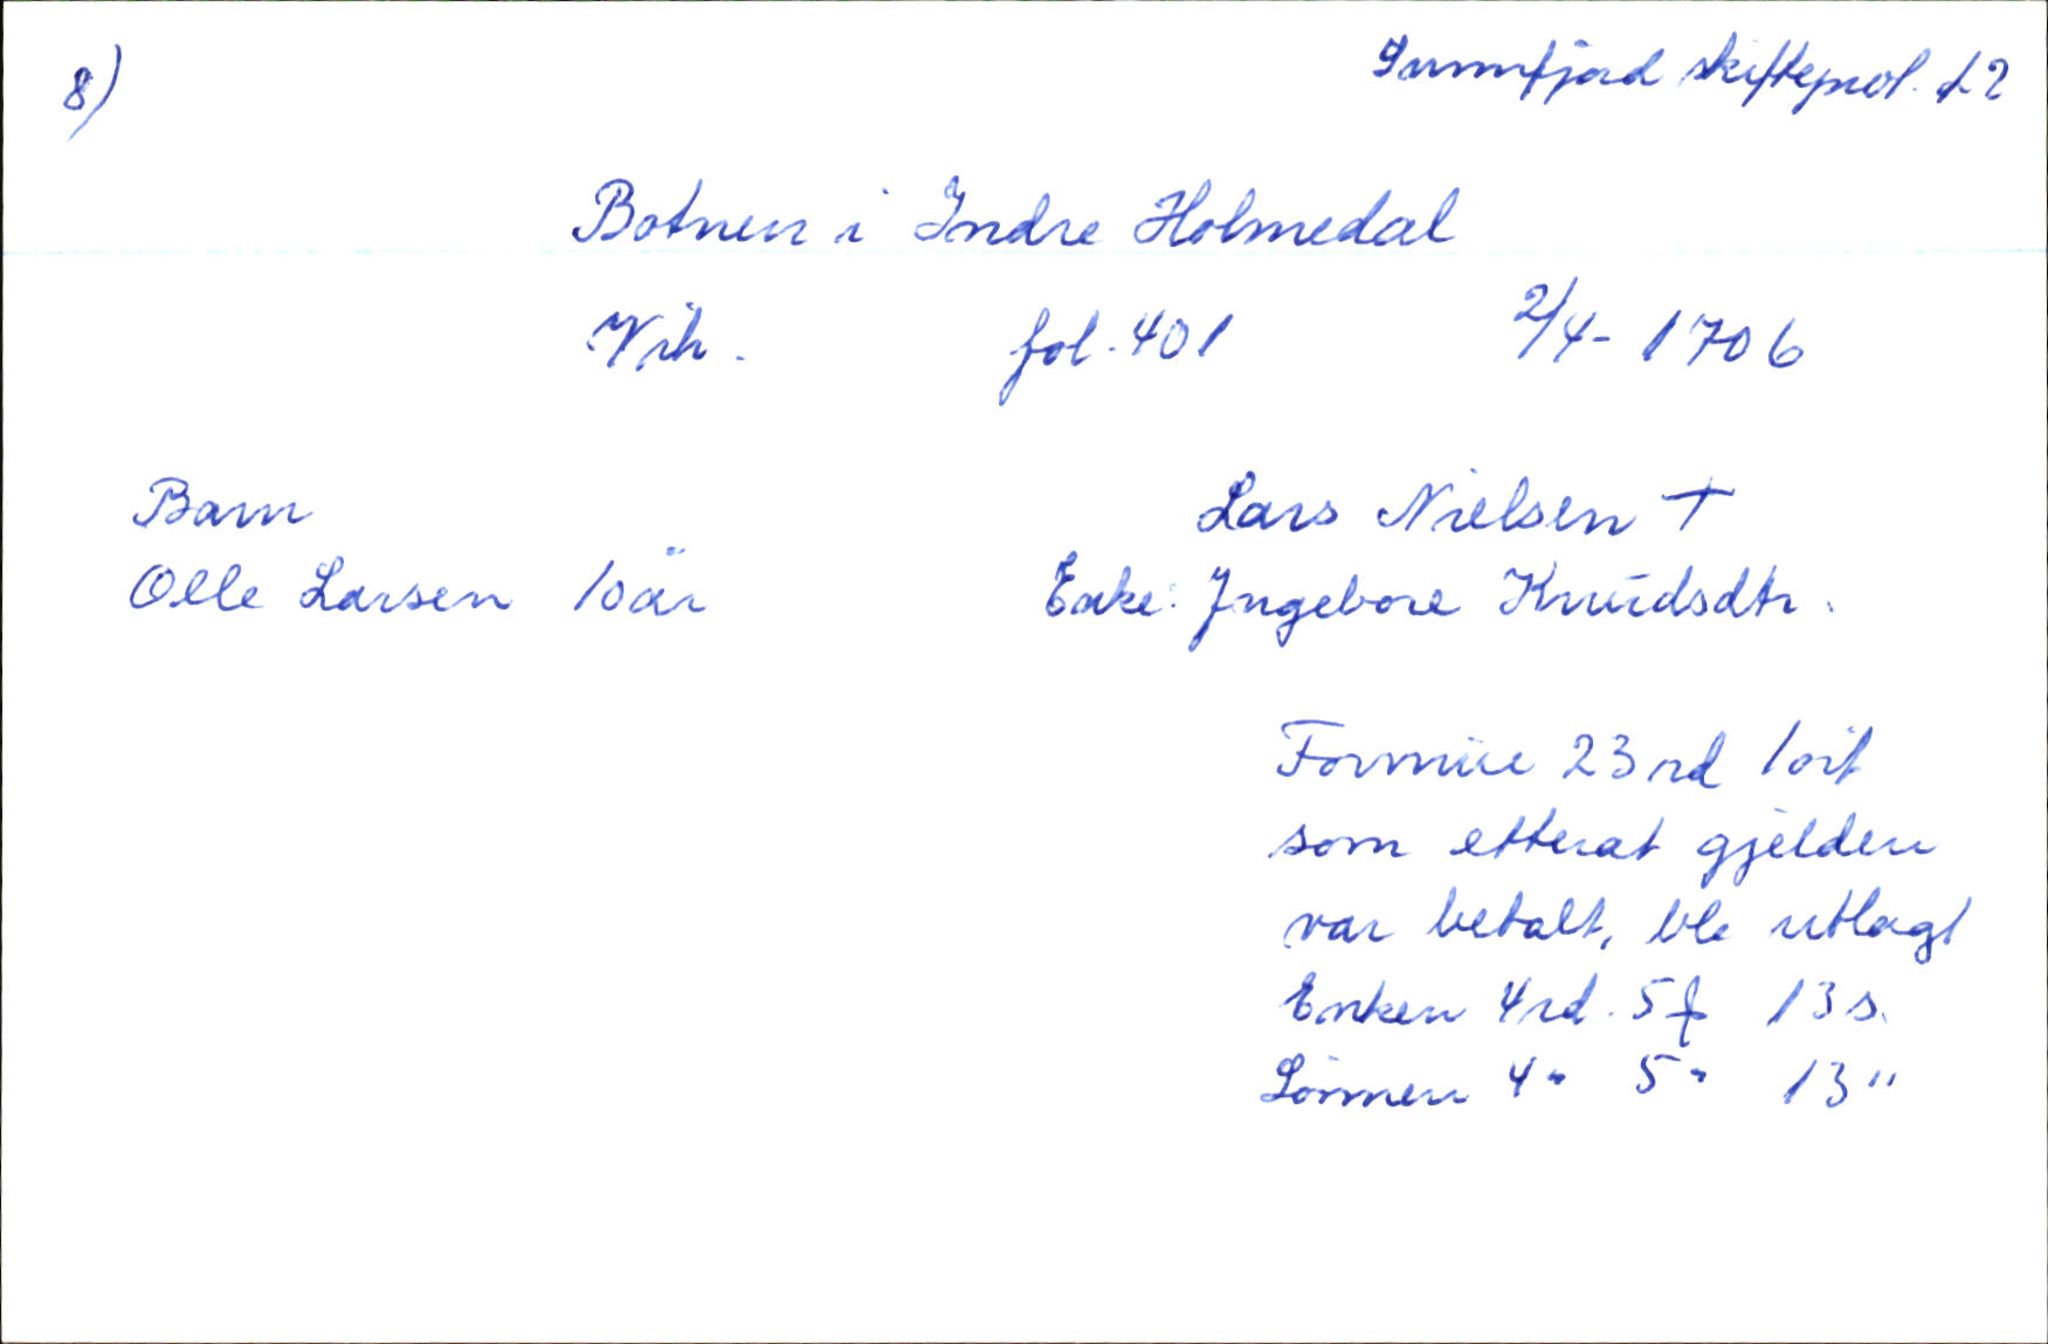 8)
Sunnfjord skifteprot. 12
Botnen i Indre Holmedal
Vih. fol. 401 2/4-1706
Barn Lars Nielsen +
Olle Larsen 10 år Enke: Ingebore Knudsdtr.
Formue 23 rd 1 ort
som etterat gjelden
var betalt, ble utlagt
Enken 4 rd. 5 f 13 s.
Sönnen 4 " 5 " 13 "